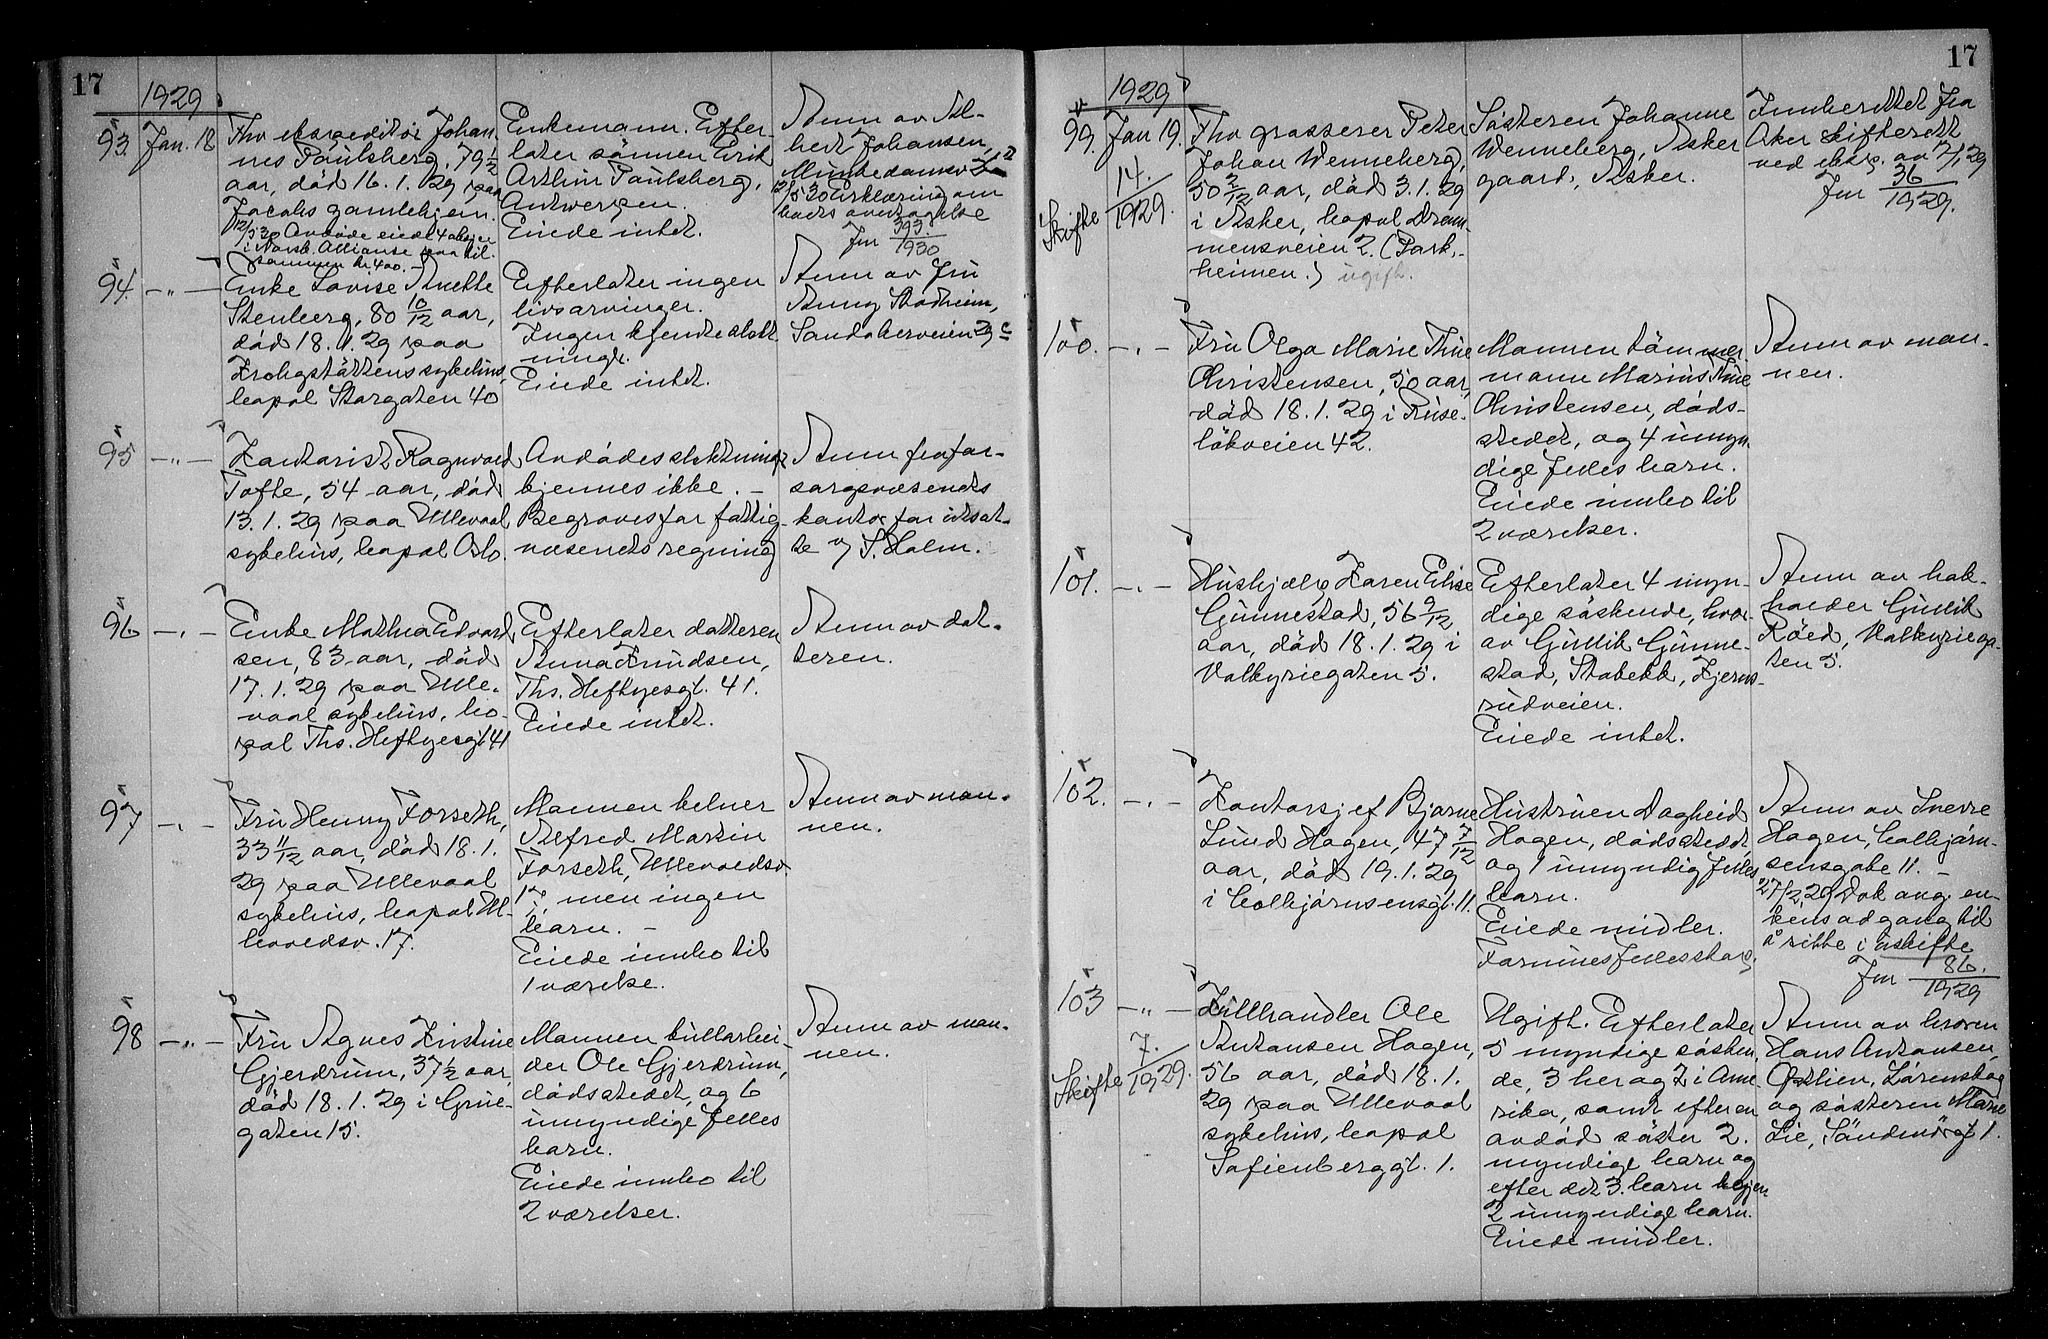 17
1929
93. Jan. 18
Fhv ekspeditör Johan-
nes Paulsberg, 79 1/2
aar, död 16. 1. 29 paa
Jacobs gamlehjem.
12/5 30 Avdöde eiede 4 aksjer
i Norsk Allianse paa til-
sammen kr 400.-
Enkemann. Efter-
later sönnen Erik
Arthur Paulsberg,
Antwerpen.
Eiede intet.
Anm av Al-
bert Johansen,
Munkedamsv
12/5 30 Erklæring om
boets overtagelse
Jnr 393/1930
94. -"-
Enke Lovise Anette
Stenberg, 80 10/12 aar,
död 18. 1. 29 paa
Krohgstöttens sykehus,
bopæl Storgaten 40
Efterlater ingen
livsarvinger.
Ingen kjente slekt
ninger.
Eiede intet.
Anm av fru
Anny Stadheim,
Sandakerveien 29 c
95 -"-
Kontorist Ragnvald
Tofte, 54 aar, död
13. 1. 29 paa Ullevaal
sykehus, bopæl Oslo.
Avdödes slektninger
kjennes ikke. -
Begraves for fattig-
væsenets regning
Anm fra for-
sorgsvæsenets
kontor for utsat-
te v/ S. Holm.
96 -"-
Enke Mathea Edvard
sen, 83 aar, död
17. 1. 29 paa Ulle-
vaal sykehus, bo-
pæl Ths. Heftyesgt 41
Efterlater datteren
Anna Knudsen,
Ths. Heftyesgt. 41.
Eiede intet.
Anm av dat-
teren.
97 -"-
Fru Henny Forseth,
33 11/12 aar, död 18. 1.
29 paa Ullevaal
sykehus, bopæl Ul-
levoldsv. 17.
Mannen kelner
Alfred Martin
Forseth, Ullevoldsv.
17, men ingen
barn. -
Eiede innbo til
1 værelse.
Anm av man-
nen.
98 -"-
Fru Agnes Kristine
Gjerdrum, 37 1/2 aar,
död 18. 1. 29 i Grue-
gaten 15.
Mannen bullarbei-
der Ole Gjerdrum,
dödsstedet, og 6
umyndige felles
barn.
Eiede innbo til
2 værelser.
Anm av man-
nen.
17
1929
99. Jan 19.
Skifte 14./1929.
Fhv grosserer Peter
Johan Wenneberg,
50 3/12 aar, död 3. 1. 29
i Asker, bopæl Dram-
mensveien 2. (Park-
heimen.) ugift.
Sösteren Johanne
Wenneberg, Asker
gaard, Asker.
Innberettet fra
Aker skifterett
ved eksp. av 7/1 29
Jnr 36/1929.
100. -"-
Fru Olga Marie Thue
Christensen, 50 aar,
död 18. 1. 29 i Ruse-
lökveien 42.
Mannen tömmer-
mann Marius Thue
Christensen, döds-
stedet, og 4 umyn-
dige felles barn.
Eiede innbo til
2 værelser.
Anm av man-
nen.
101. -"-
Hushjælp Karen Elise
Gunnestad, 56 9/12
aar, död 18. 1. 29 i
Valkyriegaten 5.
Efterlater 4 myn-
dige söskende, hvor-
av Gullik Gunne-
stad, Stabekk, Kjerns-
rudveien.
Eiede intet.
Anm av bok-
holder Gullik
Röed, Valkyriega-
ten 5.
102. -"-
Kontorsjef Bjarne
Lund Hagen, 47 7/12
aar, död 19. 1. 29
i Colbjörnsensgt. 11.
Hustruen Dagheid
Hagen, dödsstedet
og 1 umyndig felles
barn.
Eiede midler.
Formuesfellesskap.
Anm av Sverre
Hagen, Colbjörn-
sensgate 11. -
27/2 29 Dok ang. en-
kens adgang til
å sitte i uskifte
Jnr 86./1929
103 -"-
Skifte 7./1929.
Kullhandler Ole
Antonsen Hagen,
56 aar, död 18. 1.
29 paa Ullevaal
sykehus, bopæl
Sofienberggt. 1.
Ugift. Efterlater
5 myndige sösken-
de, 3 her og 2 i Ame-
rika, samt efter en
avdöd söster 2
myndige barn og
efter det 3. barn igjen
2 umyndige barn.
Eiede midler.
Anm av broren
Hans Antonsen,
Östlien, Lörenskog
og sösteren Marie
Lie, Söndre gt 1.